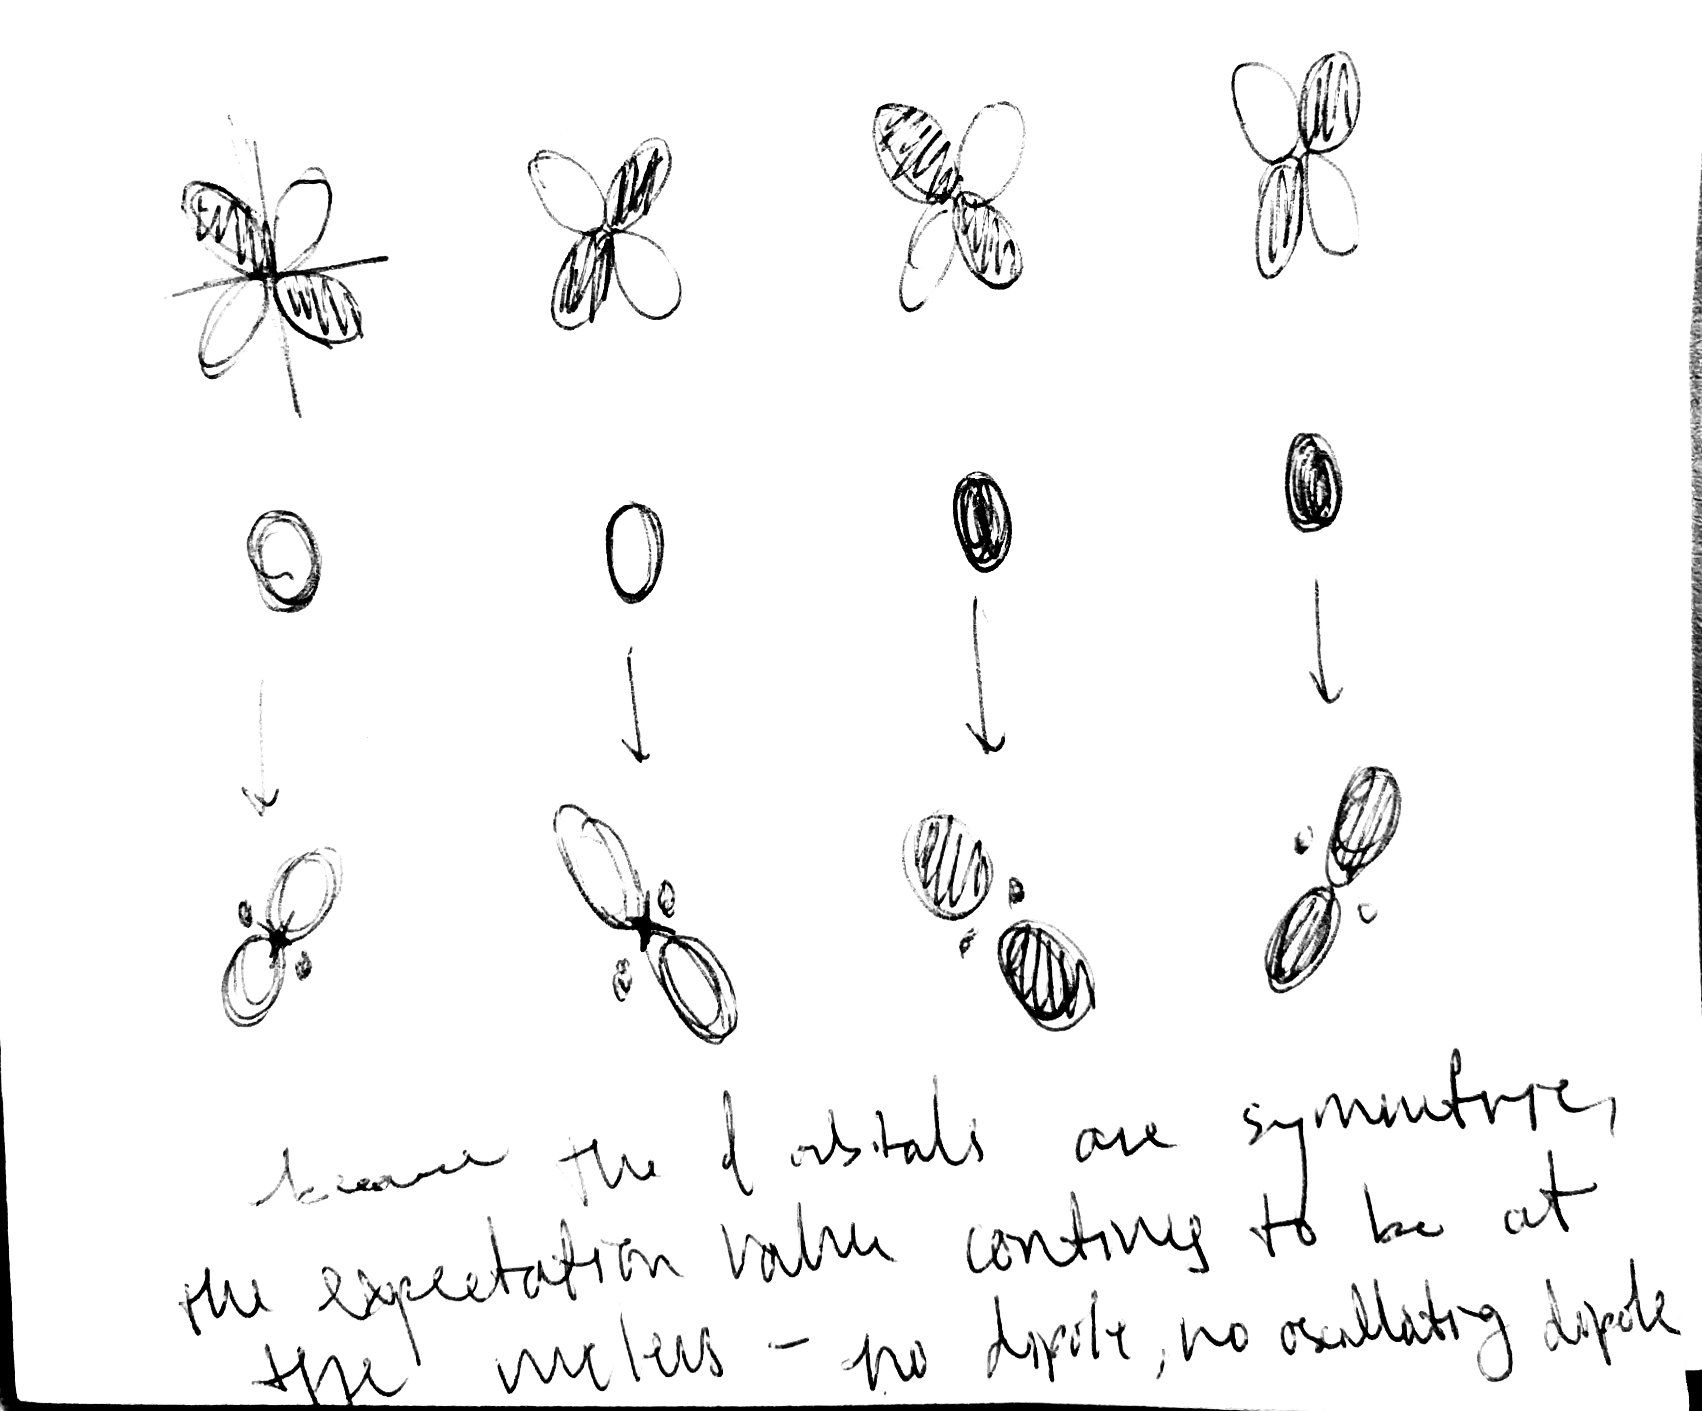 because the d orbitals are symmetric,
the expectation value continues to be at
the nucleus - no dipole, no oscillating dipole